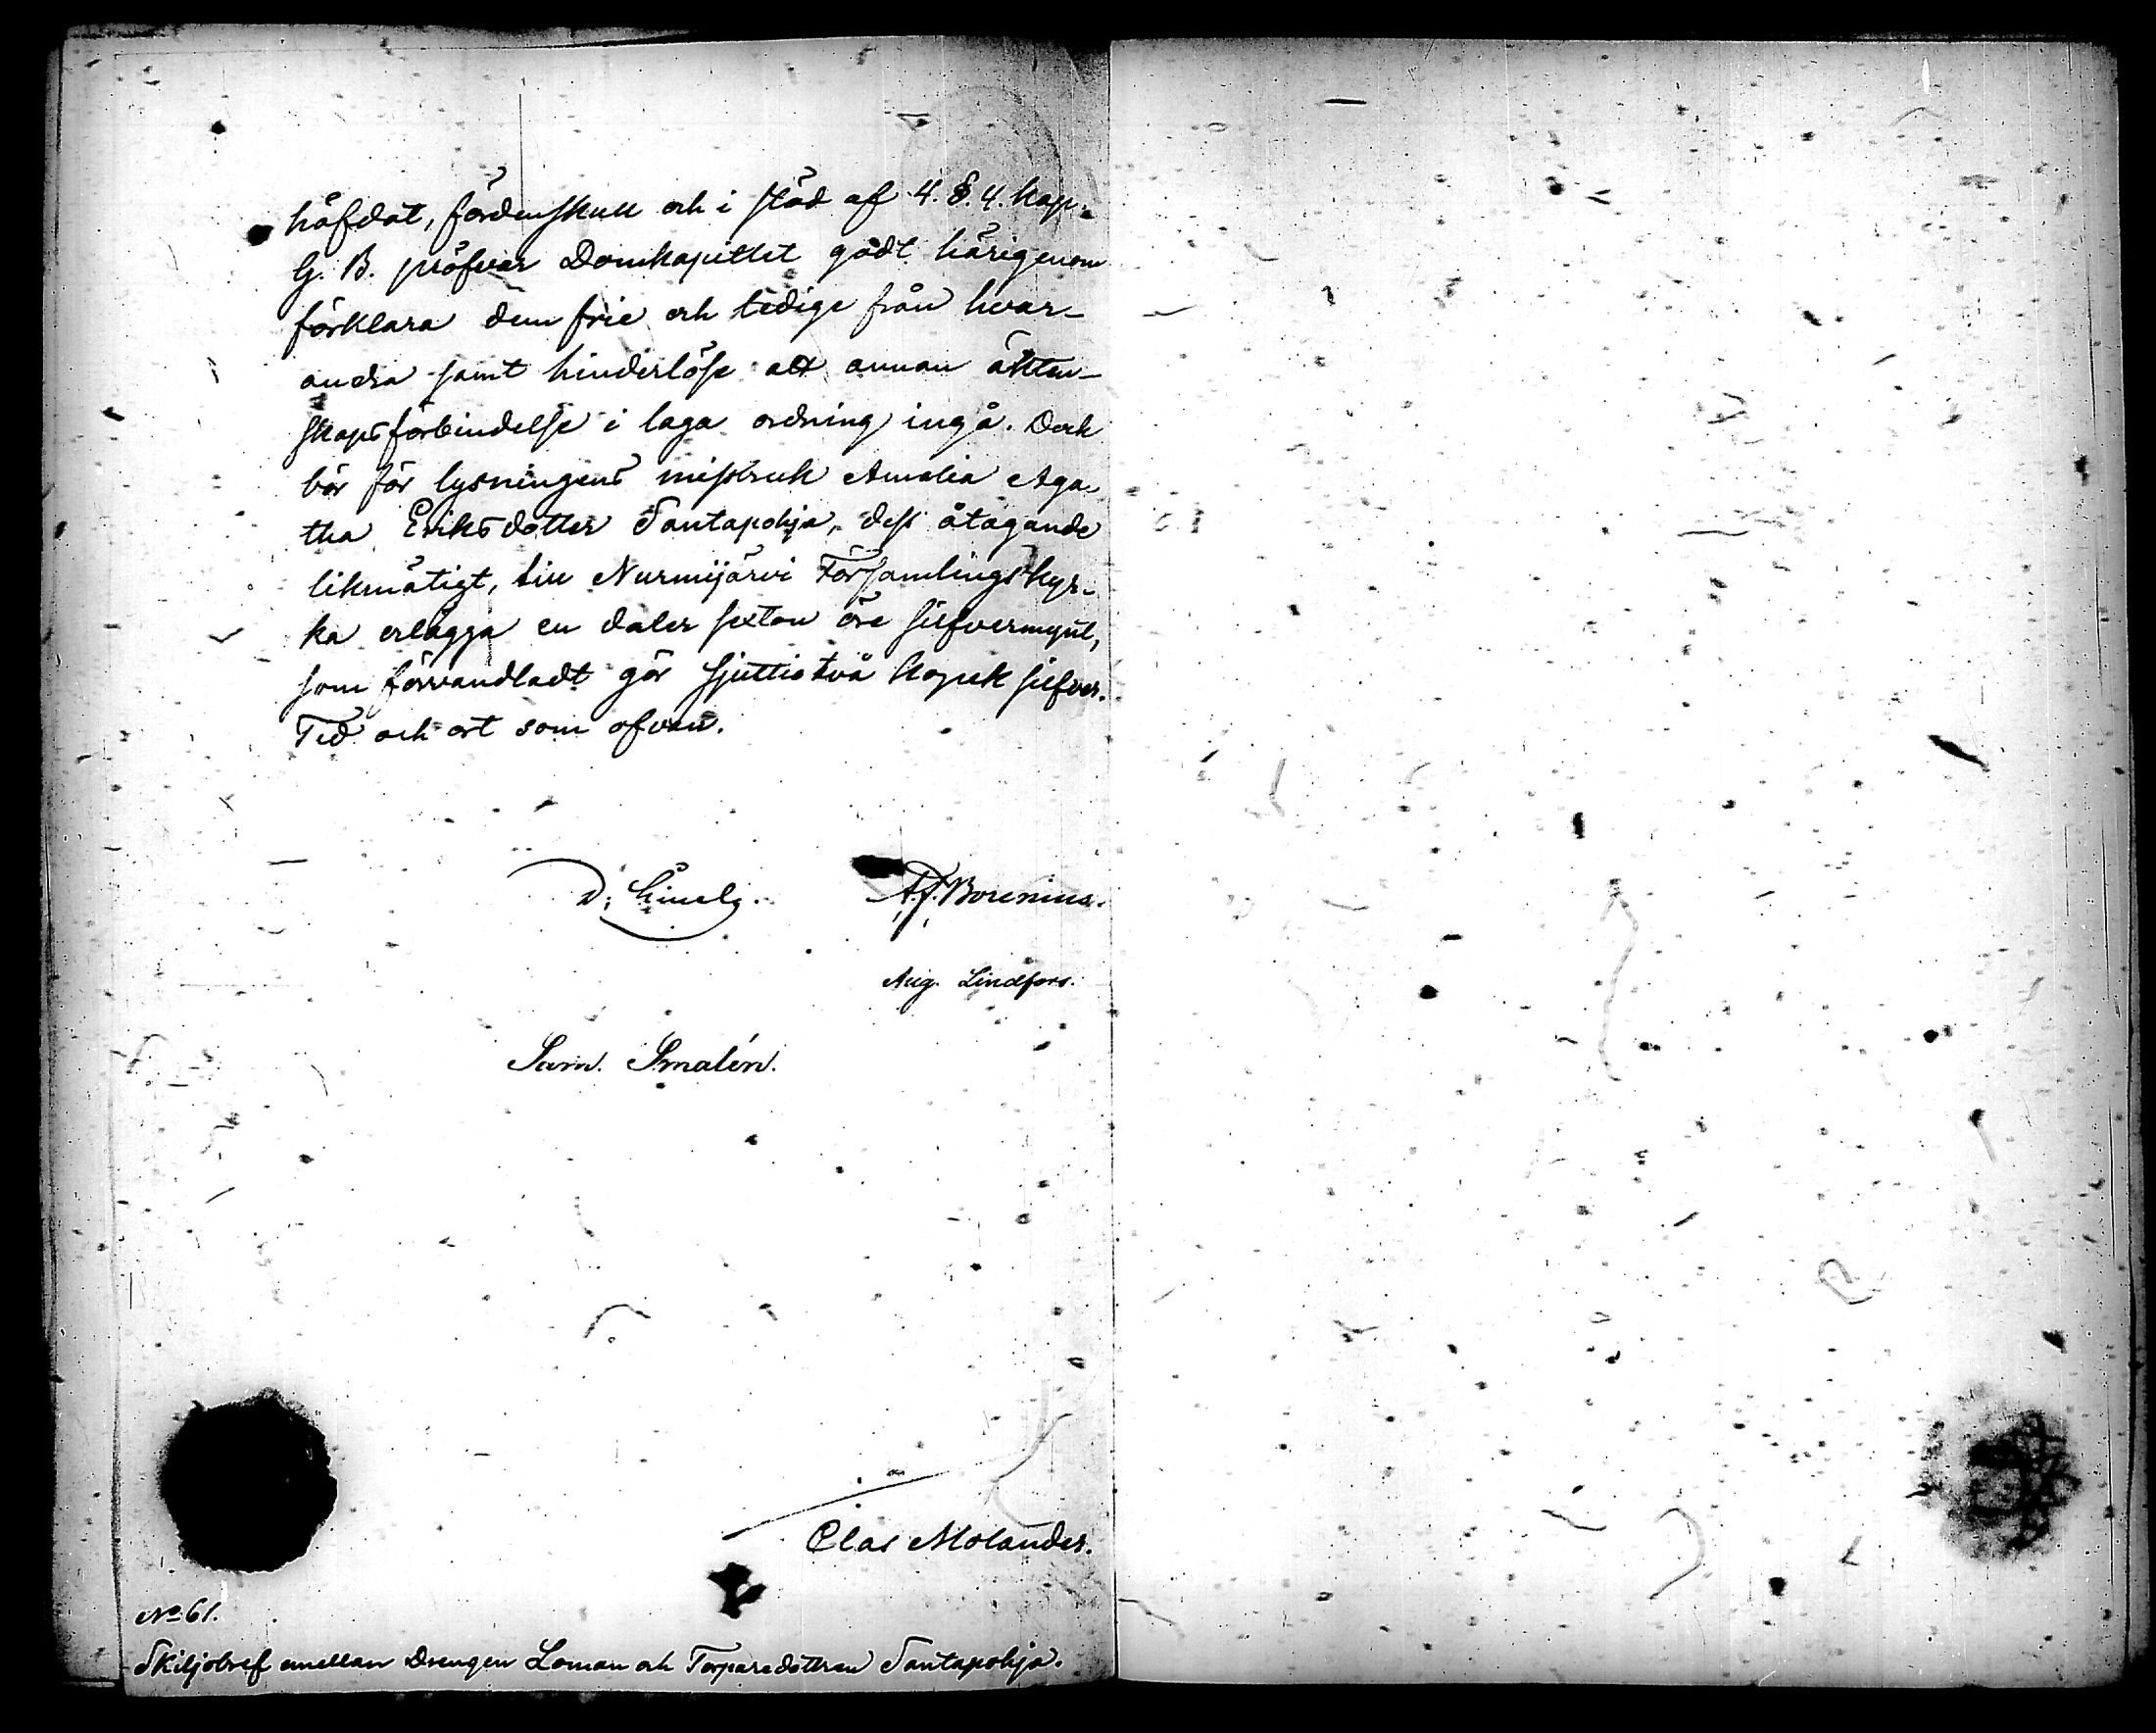 häfdat, fördenskull och i stöd af 4. §. 4. Kap.
G. B. pröfvar Domkapitlet godt härigenom
förklara dem frie och ledige från hvar-
andra samt hinderlöse att annan äkten-
skapsförbindelse i laga ordning ingå. Dock
bör för lysningens missbruk Amalia Aga-
tha Eriksdotter Santapohja, dess åtagande
likmätigt, till Nurmijärvi Församlingskyr-
ka erlägga en daler sexton öre silfvermynt,
som förvandladt gör sjuttiotvå kopek silfver.
Tid och ort som ofvan.
A. J. Borenius.
Aug. Lindfors.
Sam. Smalén.
Clas Molander.
No 61.
Skiljobref emellan Drengen Loman och Torparedottren Santapohja.